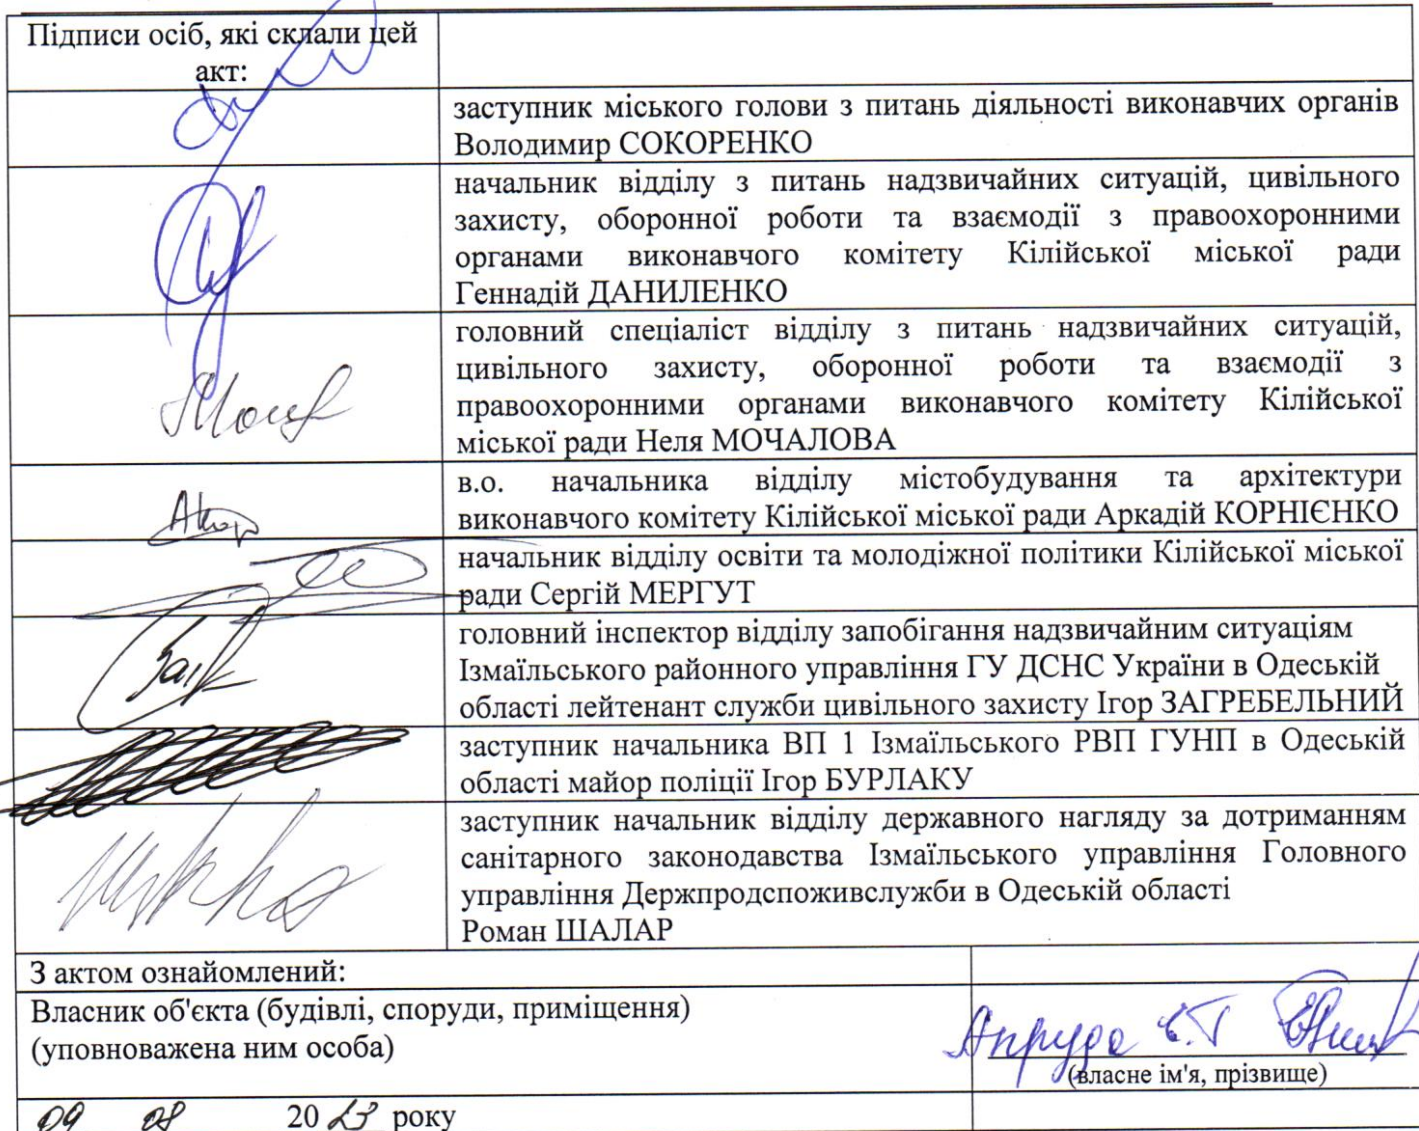 Підписи осіб, які склали цей
акт:
заступник міського голови з питань діяльності виконавчих органів
Володимир СОКОРЕНКО
начальник відділу з питань надзвичайних ситуацій, цивільного
захисту, оборонної роботи та взаємодії з правоохоронними
органами виконавчого комітету Кілійської міської ради
Геннадій ДАНИЛЕНКО
головний спеціаліст відділу з питань надзвичайних ситуацій,
цивільного захисту, оборонної роботи та взаємодії з
правоохоронними органами виконавчого комітету Кілійської
міської ради Неля МОЧАЛОВА
в.о. начальника відділу містобудування та архітектури
виконавчого комітету Кілійської міської ради Аркадій КОРНІЄНКО
начальник відділу освіти та молодіжної політики Кілійської міської
ради Сергій МЕРГУТ
головний інспектор відділу запобігання надзвичайним ситуаціям
Ізмаїльського районного управління ГУ ДСНС України в Одеській
області лейтенант служби цивільного захисту Ігор ЗАГРЕБЕЛЬНИЙ
заступник начальника ВП 1 Ізмаїльського РВП ГУНП в Одеській
області майор поліції Ігор БУРЛАКУ
заступник начальник відділу державного нагляду за дотриманням
санітарного законодавства Ізмаїльського управління Головного
управління Держпродспоживслужби в Одеській області
Роман ШАЛАР
З актом ознайомлений:
Власник об'єкта (будівлі, споруди, приміщення)
(уповноважена ним особа)
(власне ім'я, прізвище)
09 08 2023 року